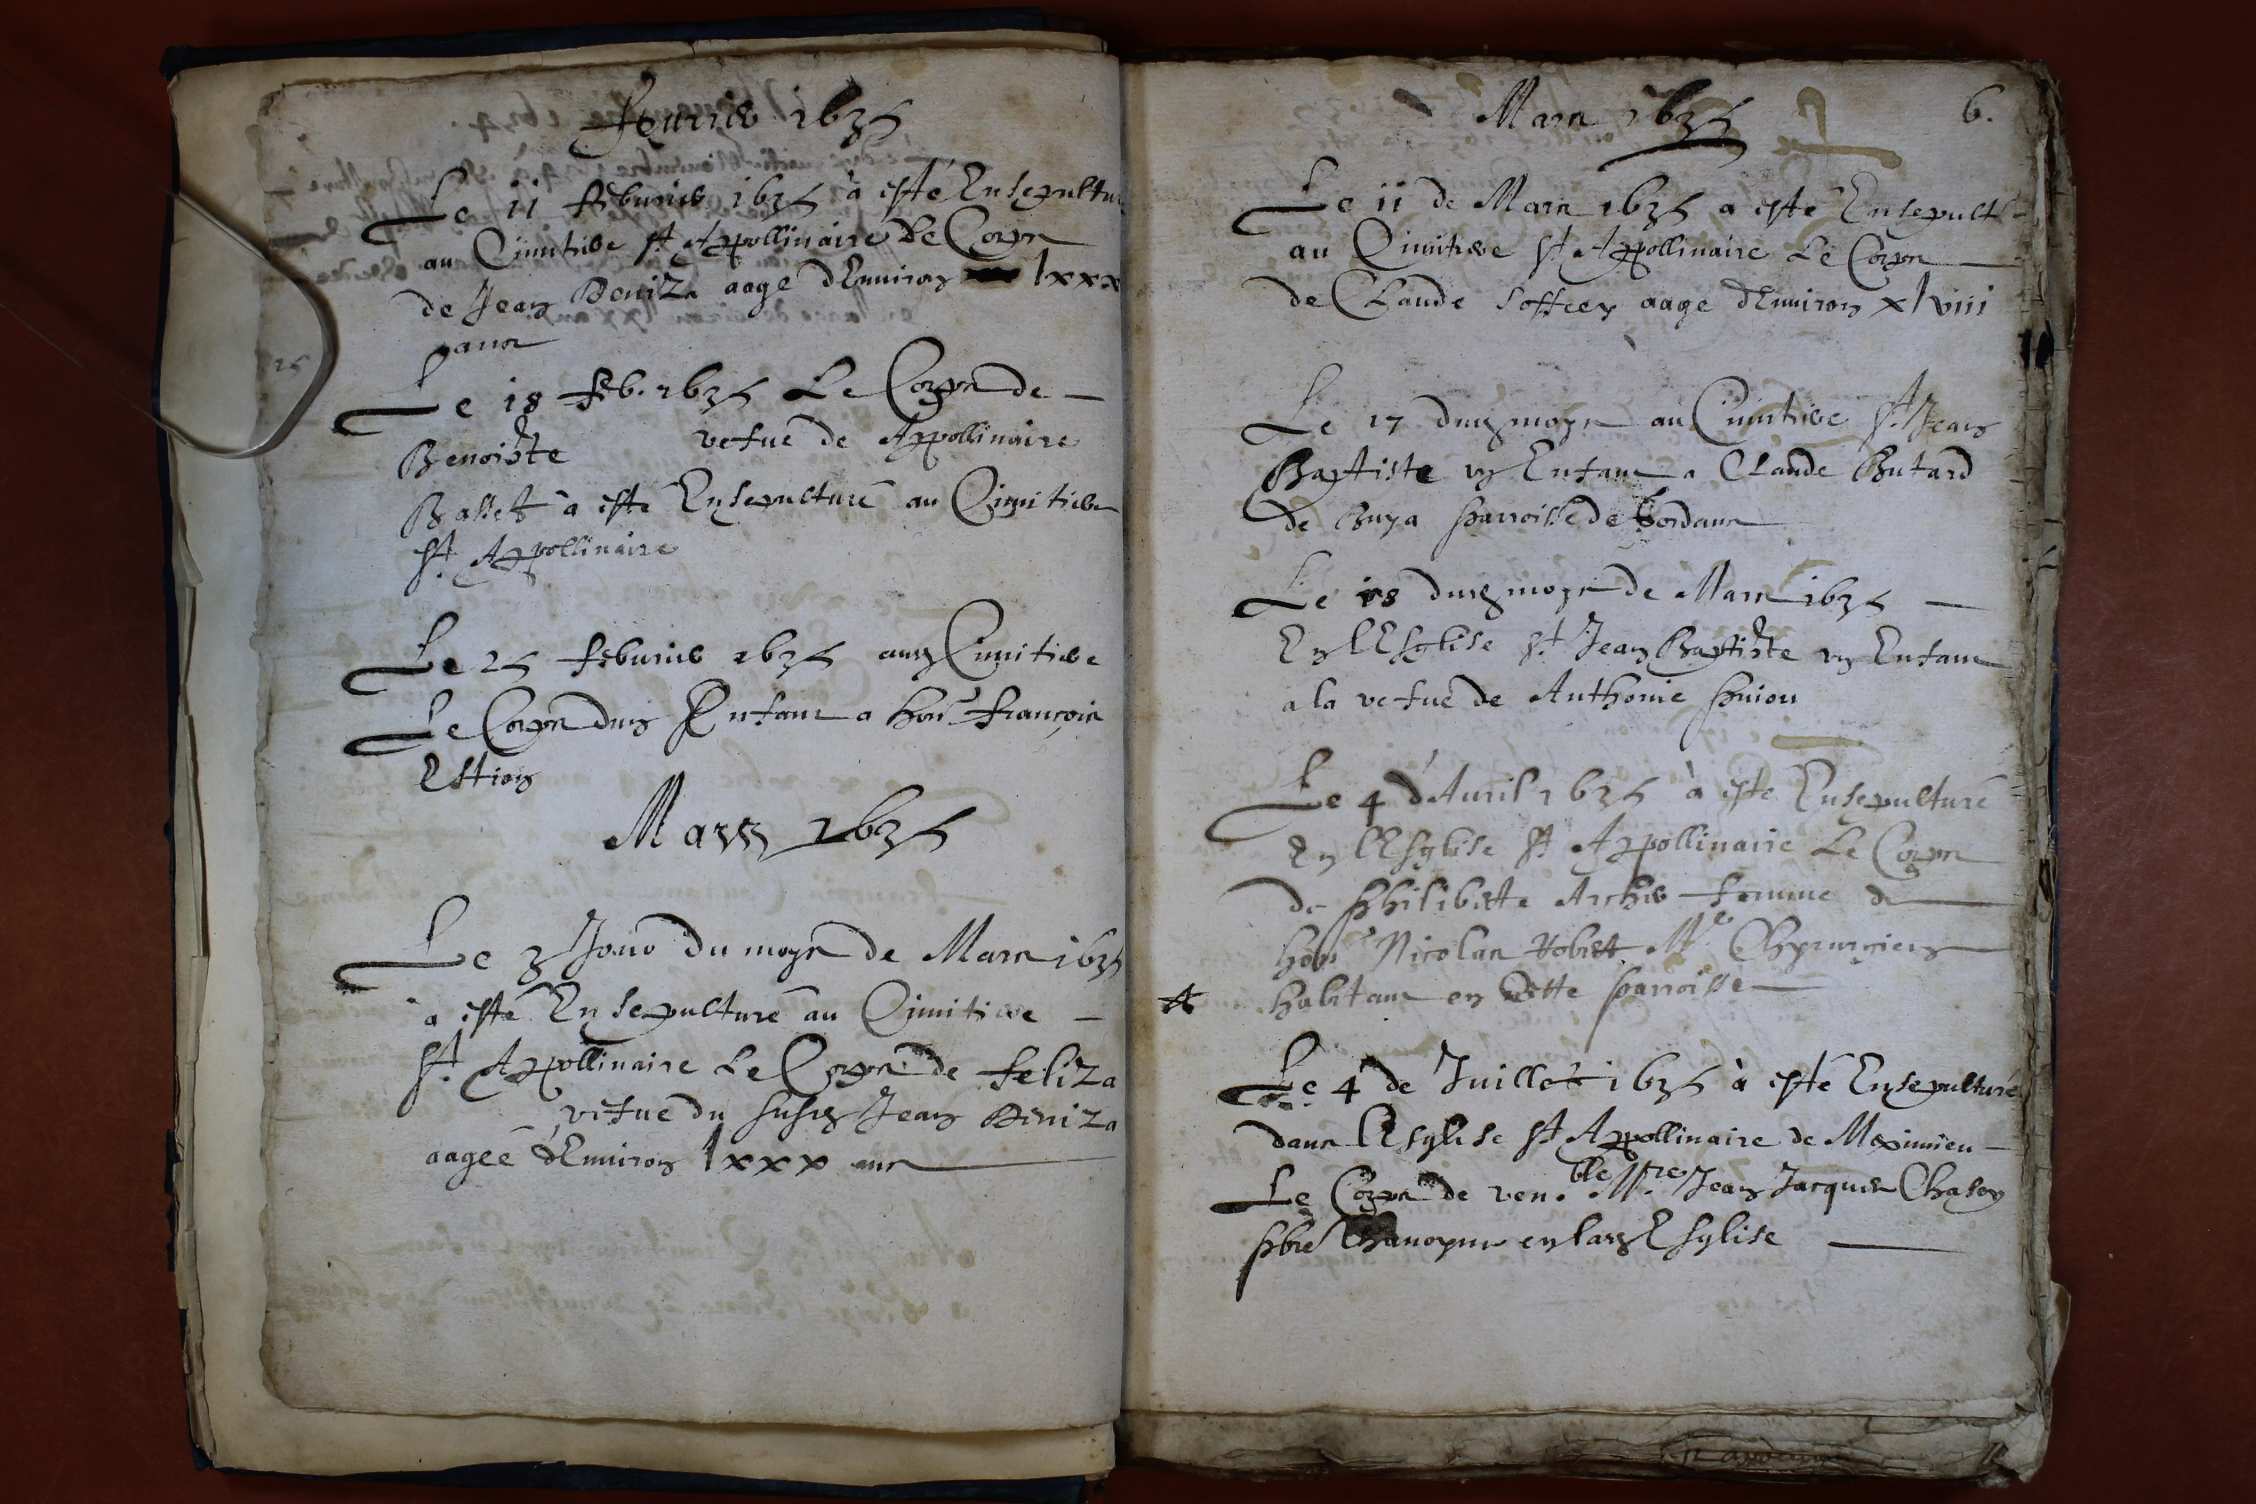 Feurier 1635
Le 11 feburier 1635 à esté Ensepultur
au Cimitiere st Appollinaire Le Corps
de Jean Deniza aagé d'Environ lxxx
ans
Le 18 feb. 1635 Le Corps de
Benoiste vefue de Appollinaire
Basset à esté Ensepulturé au Cimitiere
st. Appollinaire
25
Le 25 feburier 1635 aud Cimitiere
Le Corps dun Enfant a hon françois
Estion
Mars 1635
Le 3 Jour du moys de Mars 1635
à esté Ensepulturé au Cimitiere
st. Appollinaire Le Corps de feliza
vefue du susd Jean Deniza
aageé d'Environ lxxx ans
Mars 1635 6.
Le 11 de Mars 1635 a esté Ensepult
au Cimitiere st Appollinaire Le Corps
de Claude aagé d'Environ xlviii
Le 17 dud moys au Cimitiere st. Jean
Baptiste un Enfant a Claude Butard
de Buya parroisse de
Le 18 dud moys de Mars 1635
En l'Esglise st. Jean Baptiste un Enfant
a la vefue de Anthonie
Le 4 d'Auril 1635 à esté Ensepulturé
En l'Esglise st. Appollinaire Le Corps
de Philiberte Archer femme de
hon Nicolas Robert Me Chyrurgien
habitant en Cette parroisse
Le 4 de Juillet 1635 à esté Ensepulturé
dans l'Esglise st Appollinaire de Meximieu
Le Corps de ven.ble Mre Jean Jacques Chasey
pbre Chanoyne en lad Esglise